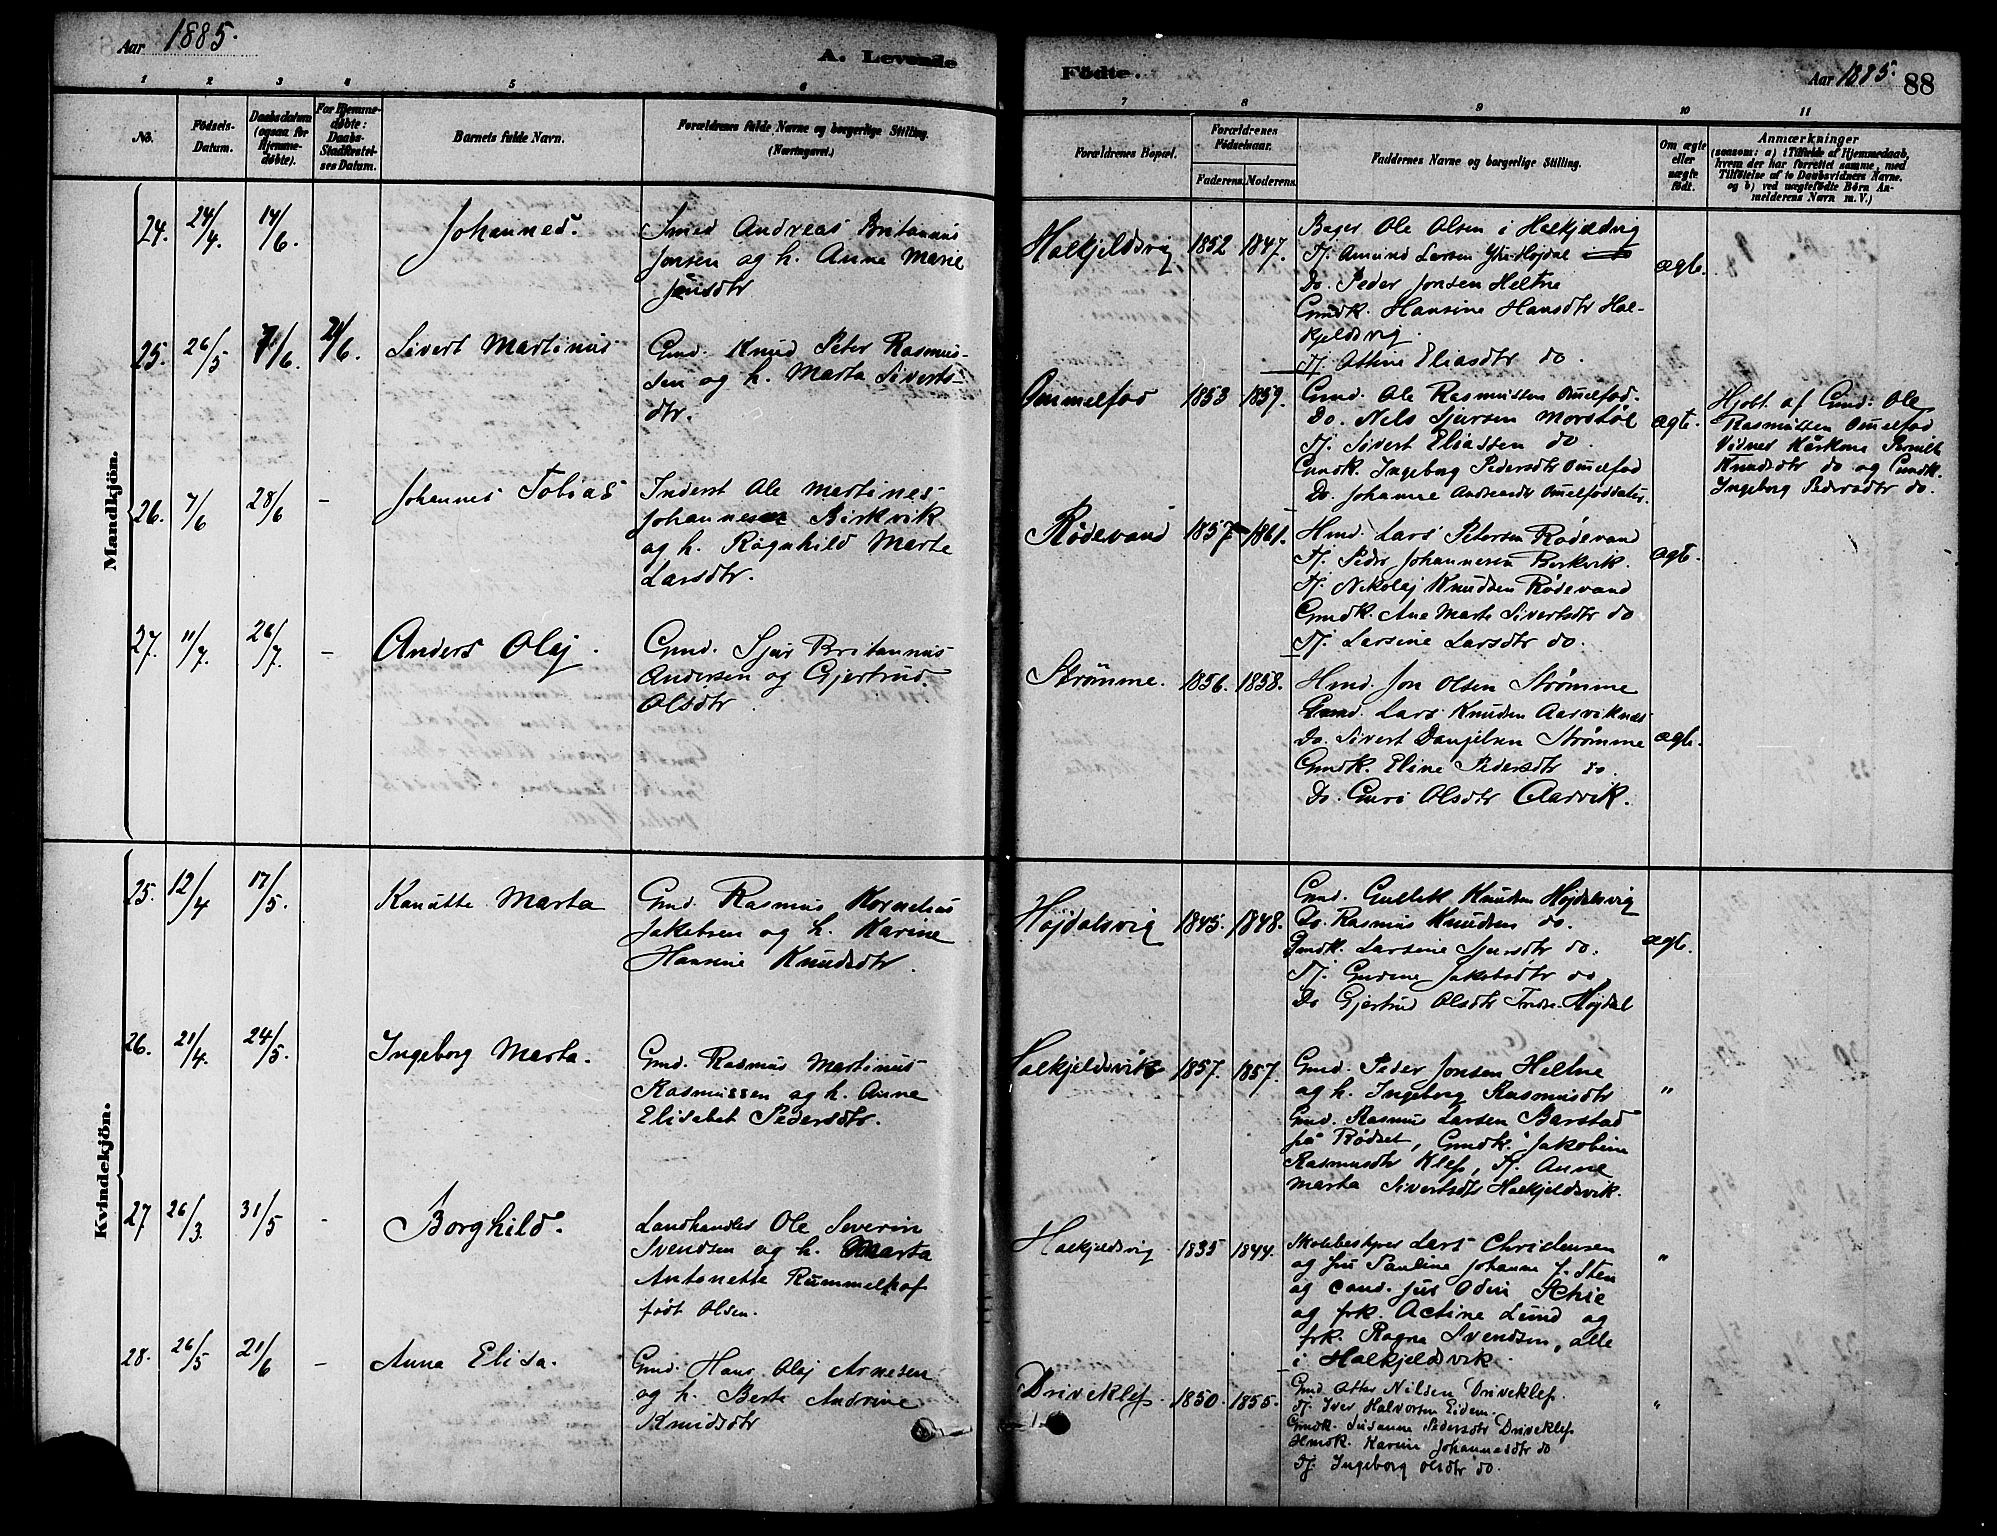 Aar 1885.
A. Levende
Födte.
Aar 1885.
88
1 2 3 4 5 6 7 8 9 10 11
No.
Födsels-
Datum.
Daabsdatum
(ogsaa for
Hjemme-
døbte).
For Hjemme-
døbte:
Daabs-
Stadfæstel-
ses Datum.
Barnets fulde Navn.
Forældrenes fulde Navne og borgerlige Stilling.
(Næringsvei.)
Forældrenes Bopæl.
Forældrenes
Födselsaar.
Faderens. Moderens.
Faddernes Navne og borgerlige Stilling.
Om ægte
eller
uægte
födt.
Anmærkninger
(saasom: a) i Tilfælde af Hjemmedaab,
hvem der har forrettet samme, med
Tilföielse af to Daabsvidners Navne.
og b) ved uægtefödte Börn An-
melderens Navn m. V.)
Mandkjön.
24. 24/4. 14/6. Johannes.
Smed Andreas Britannus
Jonsen og h. Anne Marie
Jonsdtr
Halkjeldsvig 1852 1847.
Bager Ole Olsen i Halkjeldsvig
Tj. Amund Larsen Ytre-Højdal
Do. Peder Jonsen Heltne
Gmdk. Hansine Hansdtr Hal-
kjeldsvig.
Tj. Attine Eliasdtr do.
ægte.
25. 26/5 7/6. 21/6. Sivert Martinus
Gmd. Knud Peter Rasmus-
sen og h. Marta Siverts-
dtr.
Ommelfod 1853 1859.
Gmd. Ole Rasmussen Omelfod.
Do. Nels Sjursen Morstøl
Tj. Sivert Eliassen do.
Gmdk. Ingeborg Pedersdtr Omelfod
Do. Johanne
ægte.
Hjdbt. af Gmd. Ole
Rasmussen Omelfod
Vidner Kårkone
Knudsdtr do og Gmdk.
Ingeborg Pedersdtr do.
26. 7/6 28/6 - Johannes Tobias
Inderst Ole Martines
Johannesen Birkvik
og h. Ragnhild Marte
Larsdtr.
Rødevand 1857 1861.
Hmd. Lars Petersen Rødevand
Tj. Peder Johannesen Berkvik.
Tj. Nikolaj Knudsen Rødevand
Gmdk. Ane Marte Sivertsdtr do
Tj. Larsine Larsdtr do.
ægte.
27. 11/7. 26/7 - Anders Olaj.
Gmd. Sjur Britannus
Andersen og Gjertrud
Olsdtr.
Strømme. 1856. 1858.
Hmd. Jon Olsen Strømme
Gmd. Lars Knudsen Aarviknes
Do. Sivert Danjelsen Strømme
Gmdk. Eline Pedersdtr do.
Do. Guri Olsdtr Aarvik.
ægte.
Kvindekjön.
25. 12/4 17/5. Knutte Marta
Gmd. Rasmus Kornelius
Jakobsen og h. Karine
Hansine Knudsdtr.
Højdalsvig 1845. 1848.
Gmd. Gullik Knudsen Højdalsvig
Do. Rasmus Knudsen do.
Gmdk. Larsine Sjursdtr do.
Tj. Gurine Jakobsdtr do
Do Gjertrud Olsdtr Indre-Højdal
ægte.
26. 21/4. 24/5. Ingeborg Marta.
Gmd. Rasmus Martinus
Rasmussen og h. Anne
Elisabet Pedersdtr.
Halkjeldsvik 1857. 1857.
Gmd. Peder Jonsen Heltne
og h. Ingeborg Rasmusdtr
Gmd. Rasmus Larsen Barstad
på Rødset, Gmdk. Jakobine
Rasmusdtr Klep, Tj. Anne
Marta Sivertsdtr Halkjeldsvik.
"
27 26/3. 31/5 - Borghild.
Landhandler Ole Severin
Svendsen og h. Marta
Antonette Rummelhof
født Olsen.
Halkjeldsvig 1835 1844.
Skolebestyrer Lars Christensen
og fru Pauline Johanne f. Sten
og cand. jur Odin Schie
og frk. Actine Lund og
frk. Ragna Svendsen, alle
i Halkjeldsvik.
"
28. 26/5 21/6 - Anna Elisa.
Gmd. Hans Olaj Arnesen
og h. Berte Andrine
Knudsdtr
Driveklep 1850. 1855.
Gmd Otter Nilsen Driveklep.
Tj. Iver Halvorsen Eidem.
Gmdk. Susanne Pedersdtr Driveklep
Hmdk. Karine Johannesdtr do
Tj. Ingeborg Olsdtr do.
"